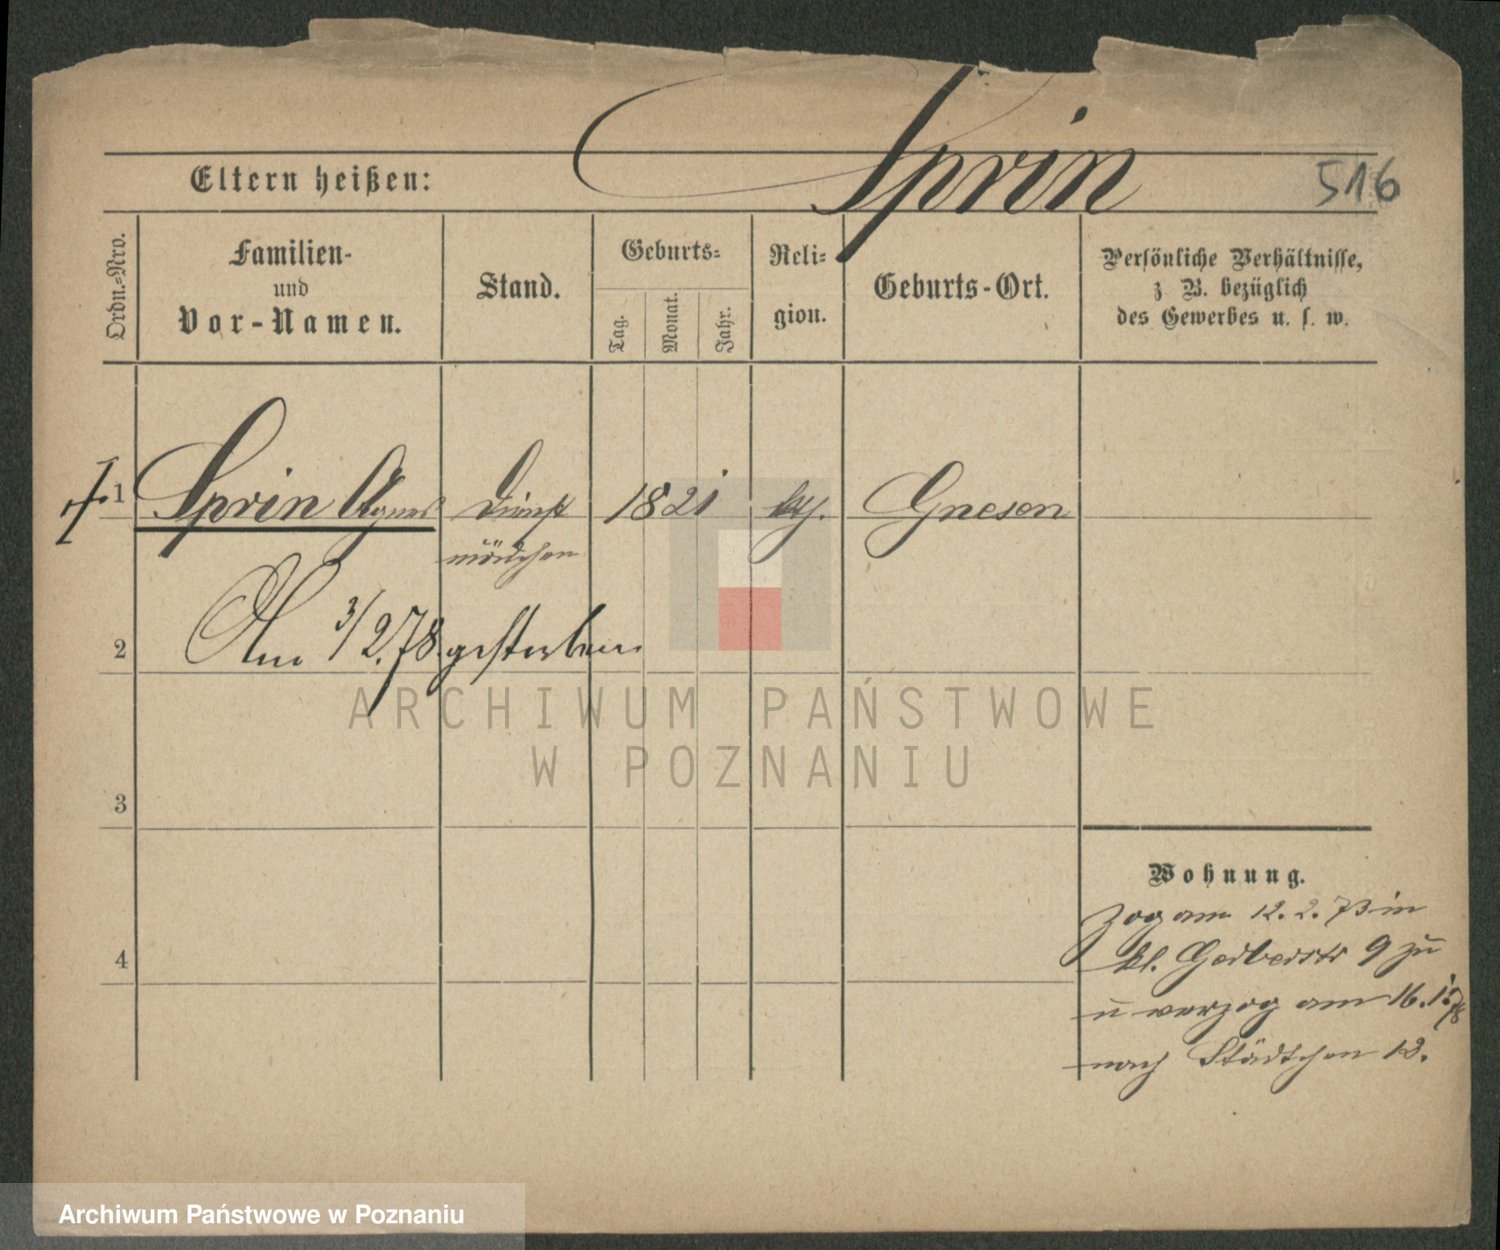 Sprin
Eltern heißen:
516
Ordn.-Nro.
Familien-
und
Vor-Namen.
Stand.
Geburts-
Tag.
Monat.
Jahr.
Reli-
gion.
Geburts-Ort.
Persönliche Verhältnisse,
z B. bezüglich
des Gewerbes u. s. w.
1 Sprin Agnes Dienst 1821 kth. Gnesen
mädchen
2 Am 3/2.78 gestorben
ARCHIWUM PAŃSTWOWE
W POZNANIU
3
Wohnung.
zog am 12. 2. 73 in
4
kl. Gerberstr 9 zu
u verzog am 16. 1. 78
nach Städtchen 12.
Archiwum Państwowe w Poznaniu